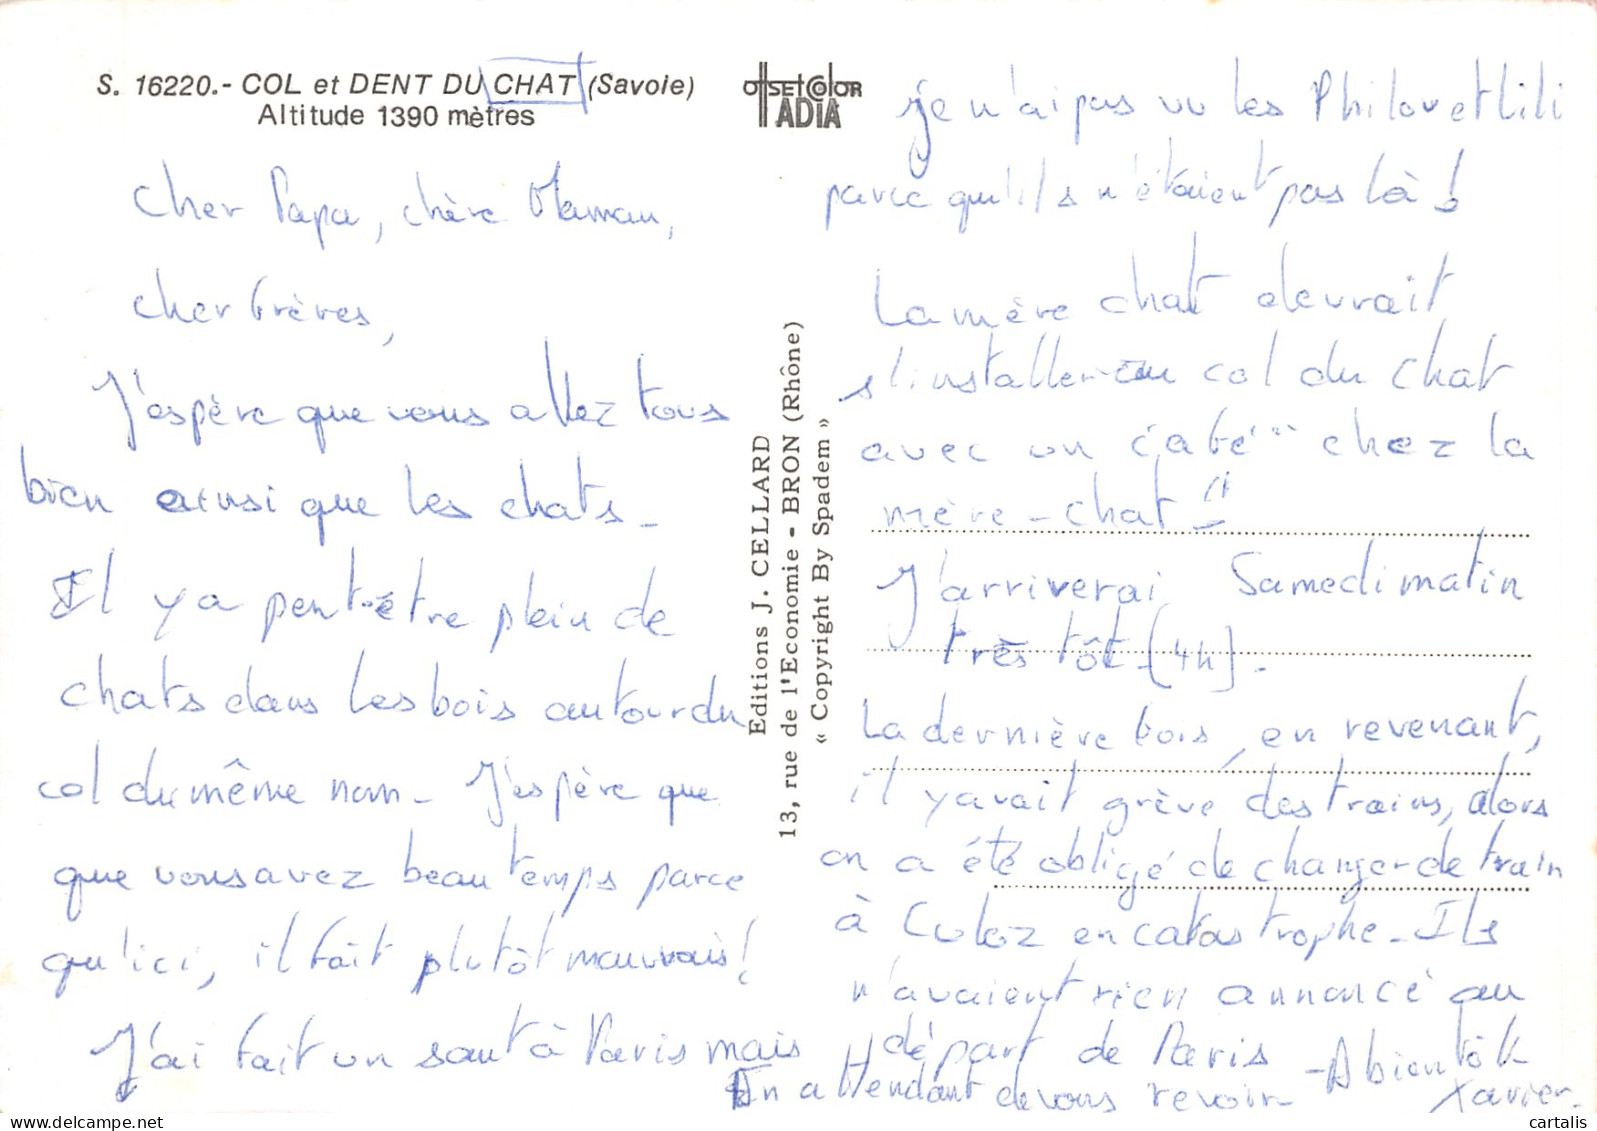 S. 16220.- COL et DENT DU CHAT (Savoie)
Altitude 1390 mètres
Cher Papa, chère Maman,
cher frères,
J'espère que vous allez tous
bien ainsi que les chats.
Il y a peut-être plein de
chats dans les bois autour du
col du même nom. J'espère que
que vous avez beau temps parce
qu'ici, il fait plutôt mauvais!
J'ai fait un saut à Paris mais
OffSET COlOR
ADIA
Editions J. CELLARD
13, rue de l'Economie - BRON (Rhône)
« Copyright By Spadem »
je n'ai pas vu les Philou et Lili
parce qu'ils n'étaient pas là !
La mère chat devrait
s'installer au col du chat
avec un café "chez la
mère-chat"!
J'arriverai Samedi matin
très tôt (4h).
La dernière fois, en revenant,
il y avait grève des trains, alors
on a été obligé de changer de train
à Culoz en catastrophe. Ils
n'avaient rien annoncé au
départ de Paris - A bientôt
En attendant de vous revoir
Xavier.
cartalis